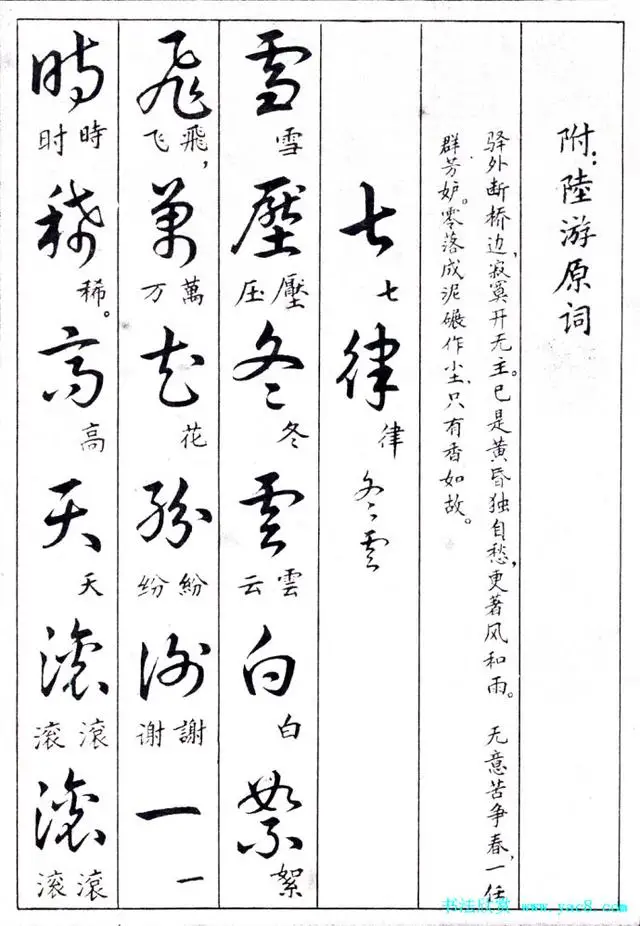 附：陸游原词
驿外断桥边，寂寞开无主。已是黄昏独自愁，更著风和雨。　无意苦争春，一任
群芳妒。零落成泥碾作尘，只有香如故。
七律　冬雲
七律
雪壓冬雲白絮
雪压壓冬云雲白絮
飛萬花紛謝一
飞飛，万萬花纷紛谢謝一
時稀高天滚滚
时時稀。高天滚滾滚滾
书法欣赏 www.yac8.com